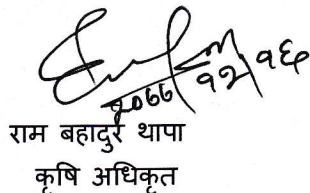 २०७७/१२/१६
राम बहादुर थापा
कृषि अधिकृत